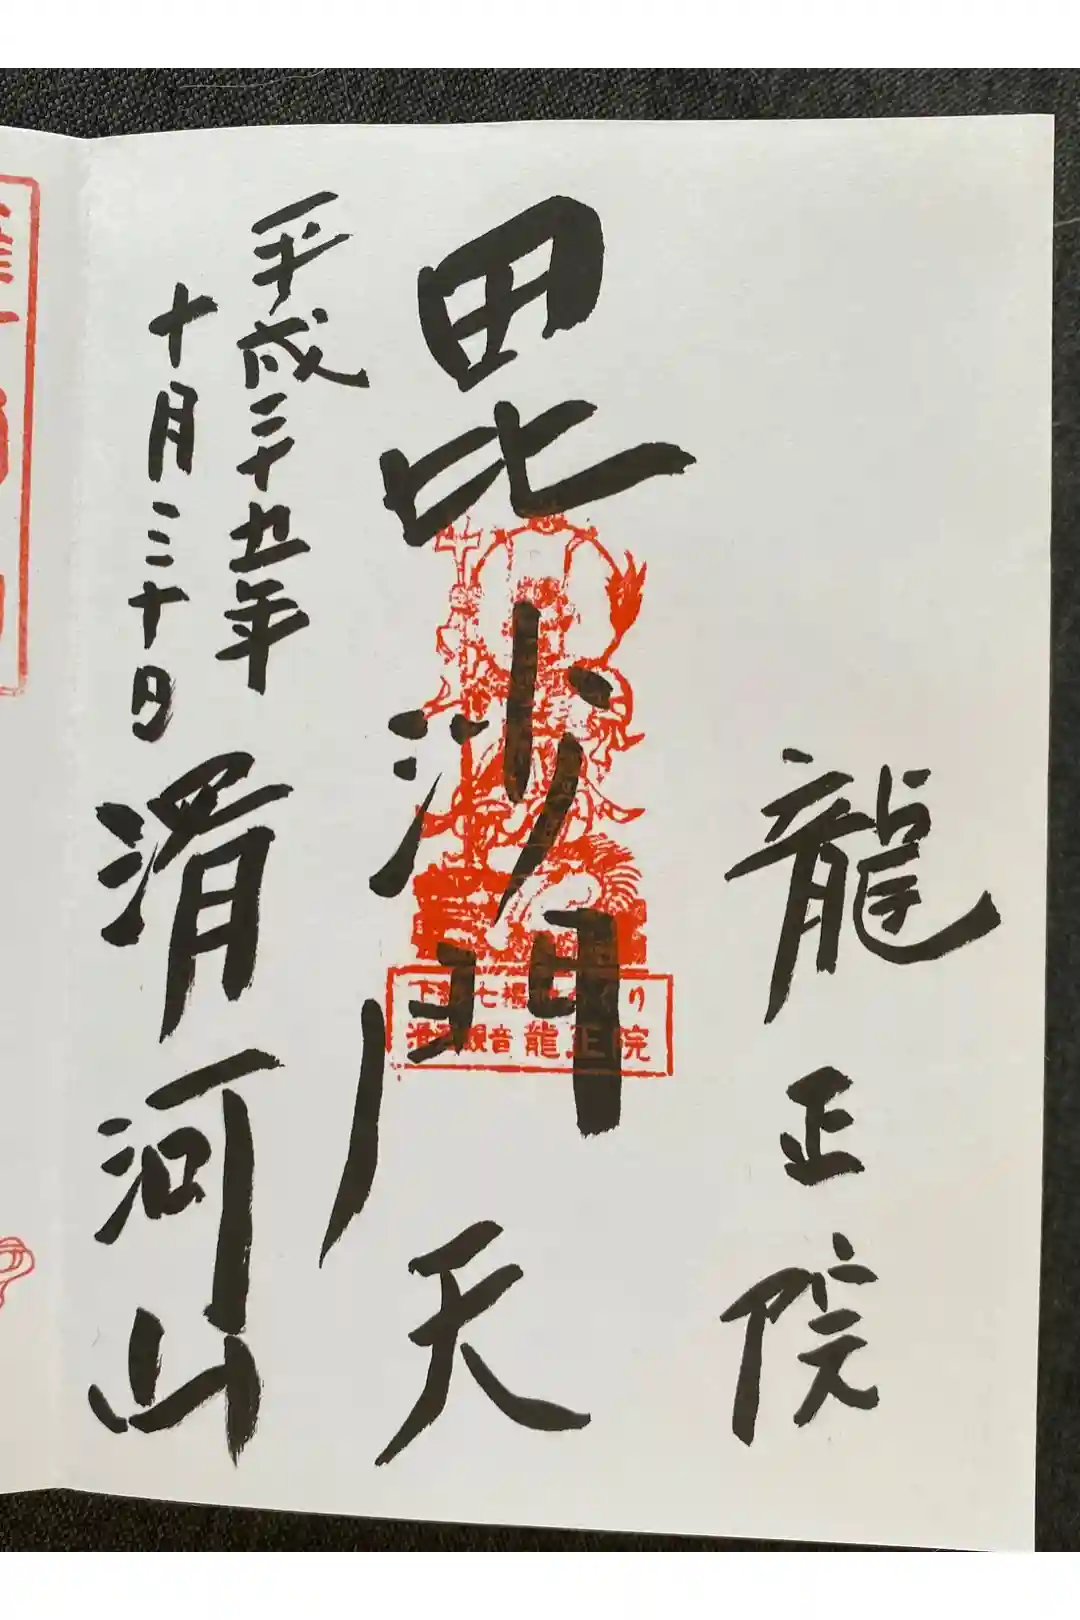 龍正院
毘沙門天
平成二十五年
十月三十日
滑河山
下総七福神めぐり
滑河観音 龍正院